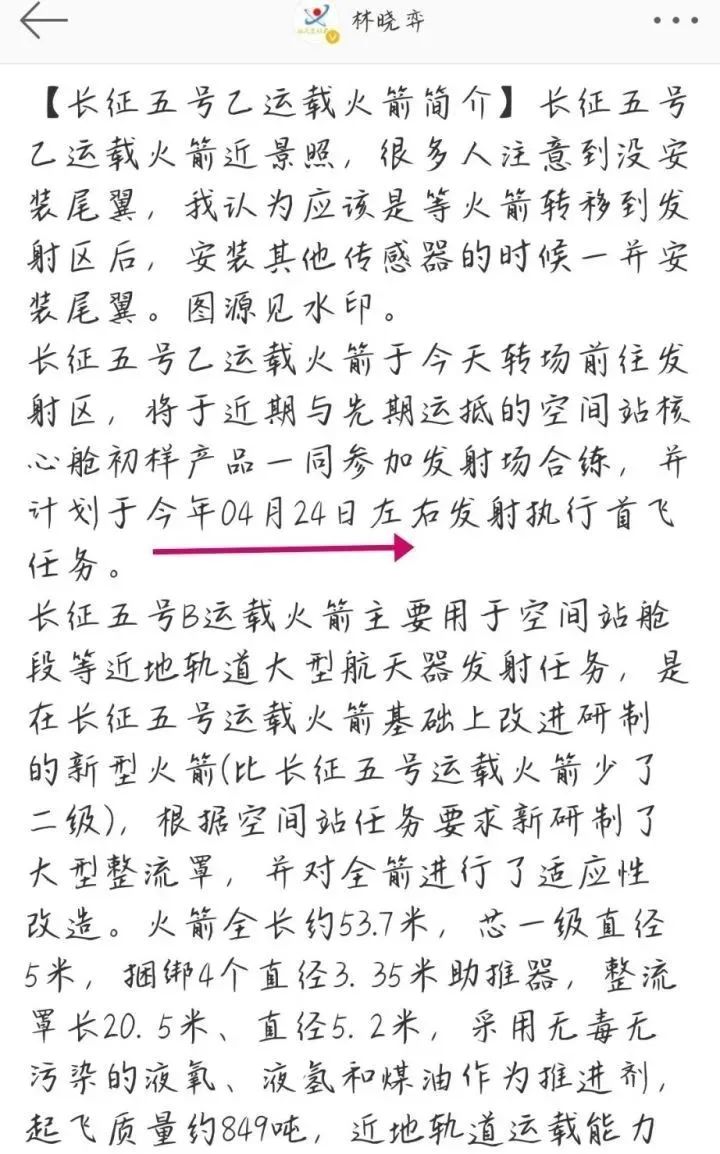 林晓弈
【长征五号乙运载火箭简介】长征五号
乙运载火箭近景照，很多人注意到没安
装尾翼，我认为应该是等火箭转移到发
射区后，安装其他传感器的时候一并安
装尾翼。图源见水印。
长征五号乙运载火箭于今天转场前往发
射区，将于近期与先期运抵的空间站核
心舱初样产品一同参加发射场合练，并
计划于今年04月24日左右发射执行首飞
任务。
长征五号B运载火箭主要用于空间站舱
段等近地轨道大型航天器发射任务，是
在长征五号运载火箭基础上改进研制
的新型火箭(比长征五号运载火箭少了
二级)，根据空间站任务要求新研制了
大型整流罩，并对全箭进行了适应性
改造。火箭全长约53.7米，芯一级直径
5米，捆绑4个直径3.35米助推器，整流
罩长20.5米、直径5.2米，采用无毒无
污染的液氧、液氢和煤油作为推进剂，
起飞质量约849吨，近地轨道运载能力